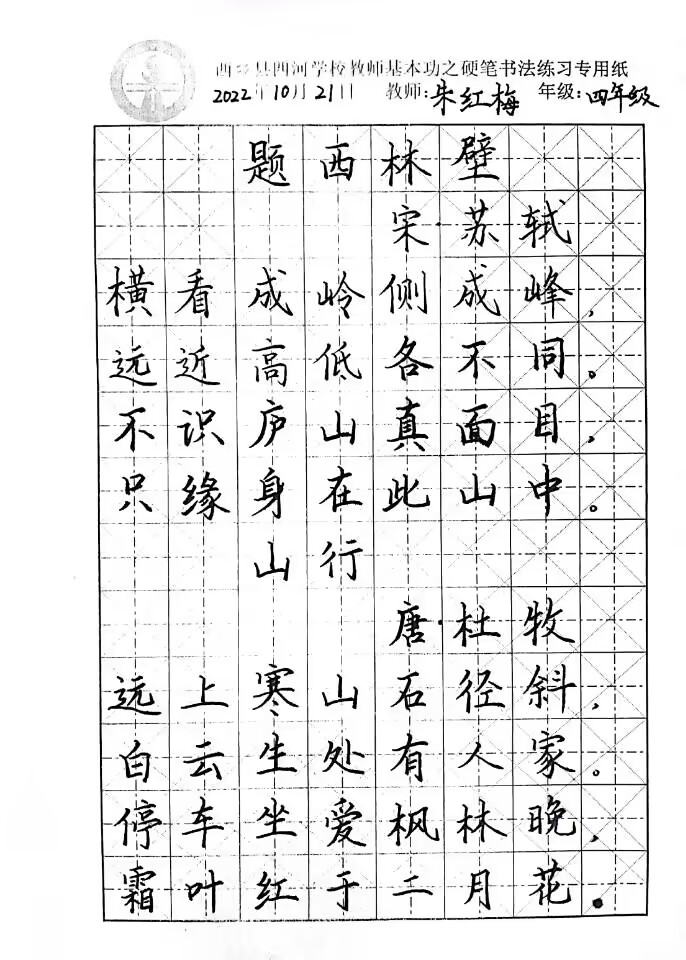 西乡县四河学校教师基本功之硬笔书法练习专用纸
2022年10月21日 教师:朱红梅 年级:四年级
题西林壁
宋·苏轼
横看成岭侧成峰,
远近高低各不同。
不识庐山真面目,
只缘身在此山中。
山行
唐·杜牧
远上寒山石径斜,
白云生处有人家。
停车坐爱枫林晚,
霜叶红于二月花。